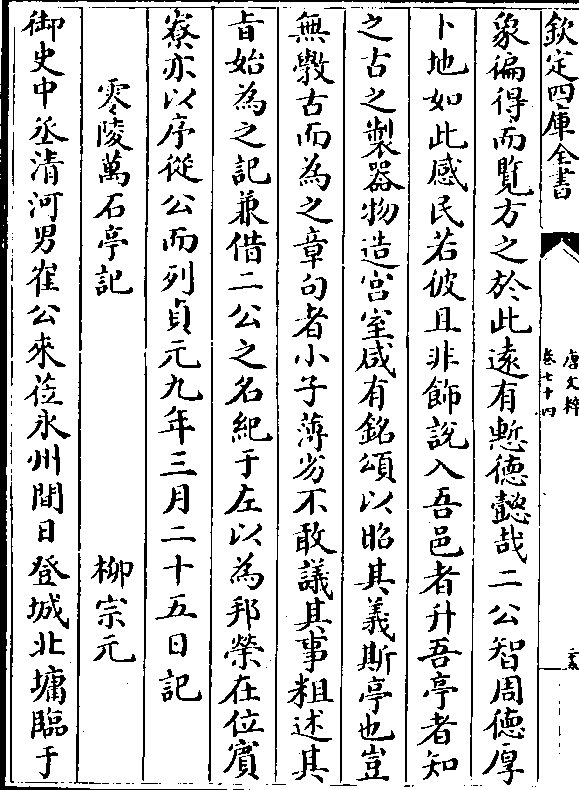 欽定四庫全書
唐文粹
卷七十四
象徧得而覽方之於此逺有慙德懿哉二公智周德厚
卜地如此感民若彼且非飾說入吾邑者升吾亭者知
之古之製器物造宫室咸有銘頌以昭其義斯亭也豈
無斆古而為之章句者小子薄劣不敢議其事粗述其
㫖始為之記兼借二公之名紀于左以為邦榮在位賓
寮亦以序從公而列貞元九年三月二十五日記
零陵萬石亭記 柳宗元
御史中丞清河男崔公來莅永州閒日登城北墉臨于